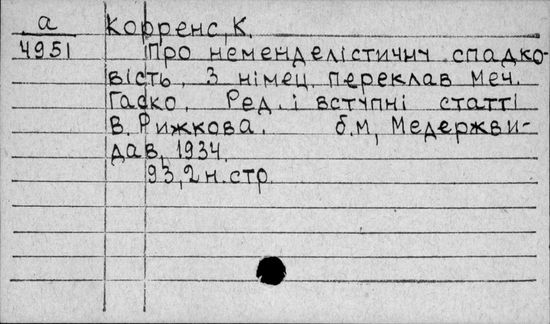 а
4951
Корренс, К.
Про неменделістичну спадко-
вість. З німец. переклав Меч.
Гаско. Ред. і вступні статті
В. Рижкова. б.м, Медержви-
дав, 1934.
93, 2 н. стр.